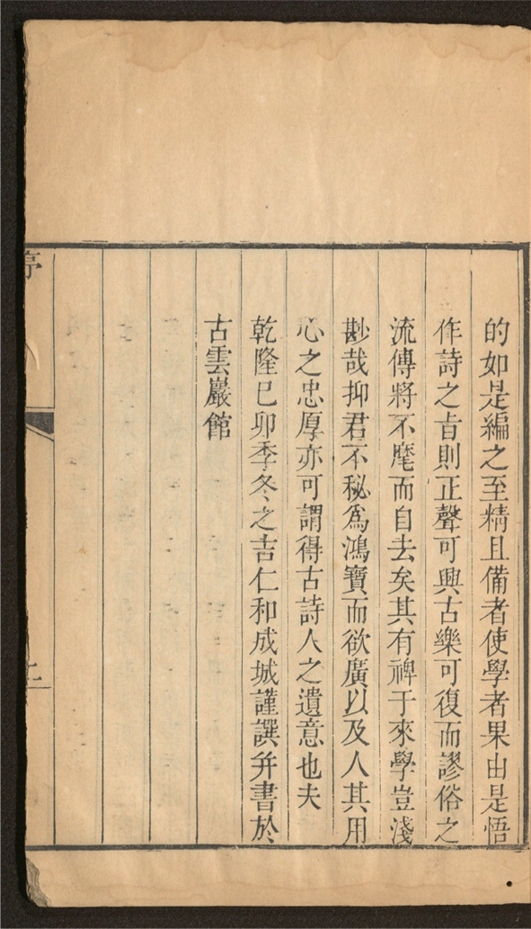 的如是編之至精且備者使學者果由是悟
作詩之㫖則正聲可興古樂可復而謬俗之
流傳將不麾而自去矣其有裨于來學豈淺
尠哉抑君不秘爲鴻寶而欲廣以及人其用
心之忠厚亦可謂得古詩人之遺意也夫
乾隆巳卯季冬之吉仁和成城謹譔并書於
古雲巖館
亭